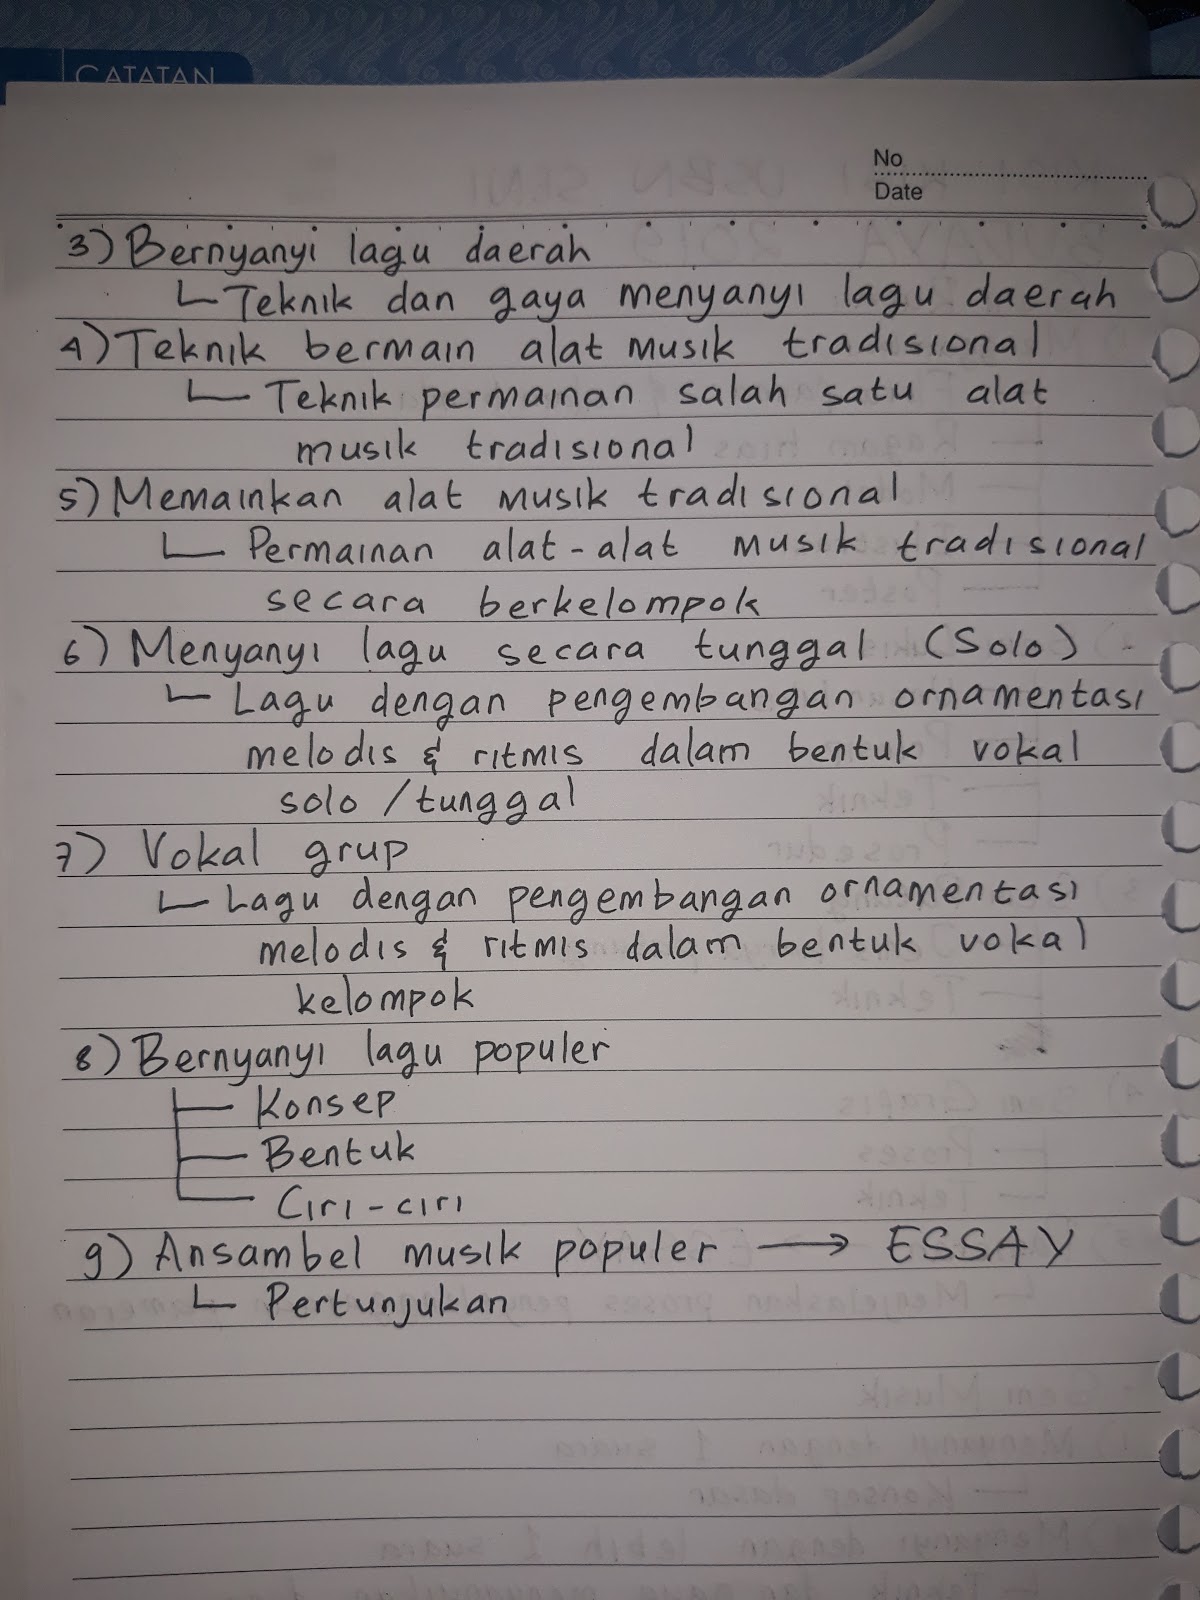 CATATAN
No
Date
3) Bernyanyi lagu daerah
Teknik dan gaya menyanyi lagu daerah
4) Teknik bermain alat musik tradisional
Teknik permainan salah satu alat
musik tradisional
5) Memainkan alat musik tradisional
Permainan alat-alat musik tradisional
secara berkelompok
6) Menyanyi lagu secara tunggal (Solo)
Lagu dengan pengembangan ornamentasi
melodis & ritmis dalam bentuk vokal
solo / tunggal
7) Vokal grup
Lagu dengan pengembangan ornamentasi
melodis & ritmis dalam bentuk vokal
kelompok
8) Bernyanyi lagu populer
Konsep
Bentuk
Ciri-ciri
9) Ansambel musik populer → ESSAY
Pertunjukan